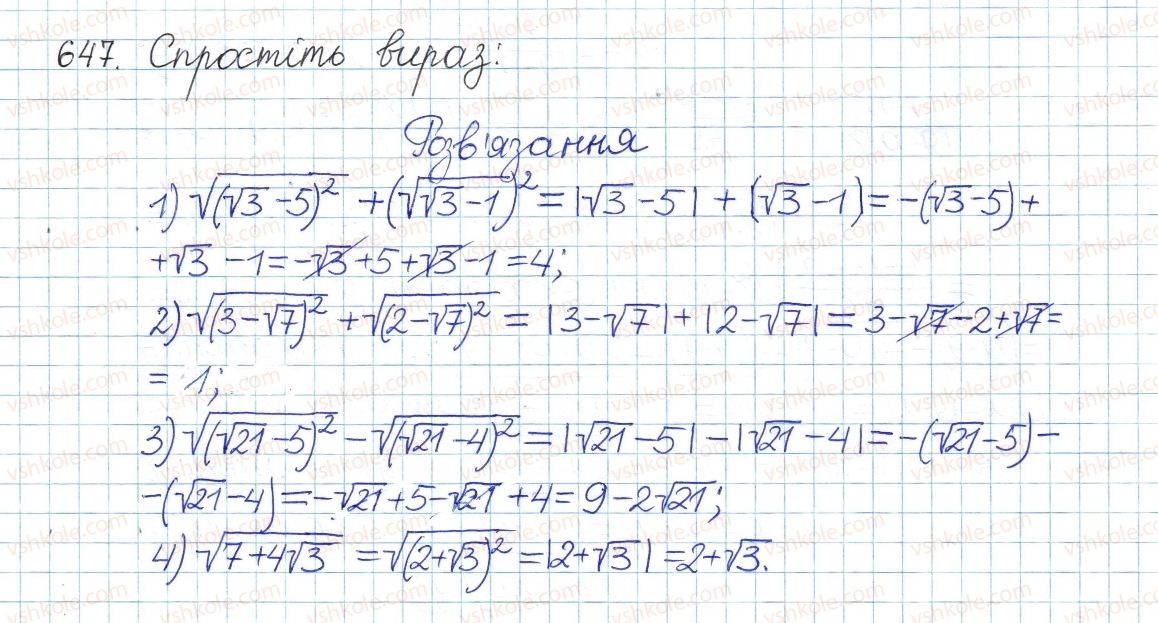 647. Спростіть вираз:
Розв'язання
1) √(√3 -5)² + (√√3 -1)² = |√3 -5| + (√3 -1) = -(√3 -5) +
+√3 -1 = -√3 +5 +√3 -1 = 4;
2) √(3-√7)² + √(2-√7)² = |3-√7| + |2-√7| = 3-√7 -2+√7 =
= 1;
3) √(√21 -5)² - √(√21 -4)² = |√21 -5| - |√21 -4| = -(√21 -5) -
-(√21 -4) = -√21 +5 -√21 +4 = 9 - 2√21;
4) √7+4√3 = √(2+√3)² = |2+√3| = 2+√3.